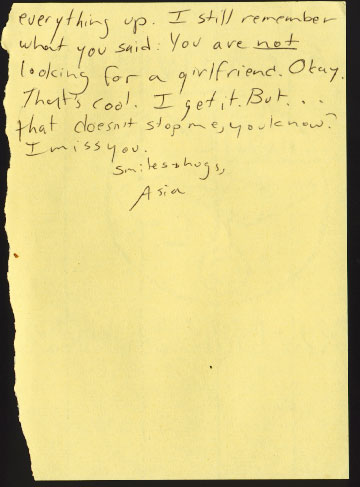 everything up. I still remember
what you said: You are not
looking for a girlfriend. Okay.
That's cool. I get it. But...
that doesn't stop me, you know?
I miss you.
smiles & hugs,
Asia